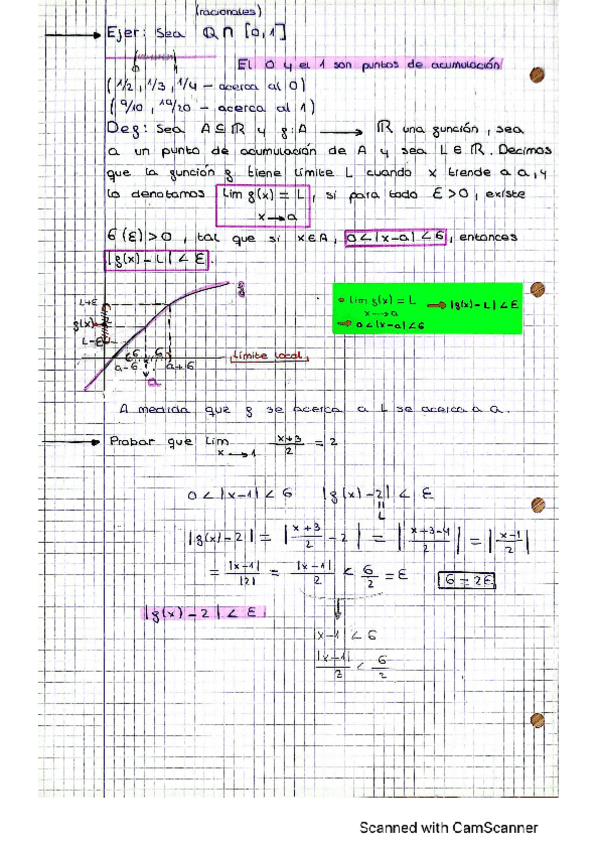 (racionales)
Ejer: Sea ℚ ∩ [0,1]
El 0 y el 1 son puntos de acumulación
(1/2, 1/3, 1/4 – acerca al 0)
(9/10, 19/20 – acerca al 1)
Def: Sea A ⊆ ℝ y f: A ⟶ ℝ una función, sea
a un punto de acumulación de A y sea L ∈ ℝ. Decimos
que la función f tiene límite L cuando x tiende a a, y
lo denotamos lim f(x) = L, si para todo ε > 0, existe
x→a
δ(ε) > 0, tal que si x∈A, 0<|x-a|<δ, entonces
|f(x)-L| < ε.
L+ε
f(x)
L-ε
δ δ
a-δ a+δ
a
Límite local
lim f(x) = L ⇒ |f(x)-L| < ε
x→a
⇒ 0<|x-a|<δ
A medida que f se acerca a L se acerca a a.
Probar que lim x+3/2 = 2
x→1
0<|x-1|<δ |f(x)-2| < ε
L
|f(x)-2| = |x+3/2 - 2| = |x+3-4/2| = |x-1/2|
= |x-1|/|2| = |x-1|/2 < δ/2 = ε δ = 2ε
|f(x)-2| < ε
x-1 < δ
|x-1|/2 < δ/2
Scanned with CamScanner